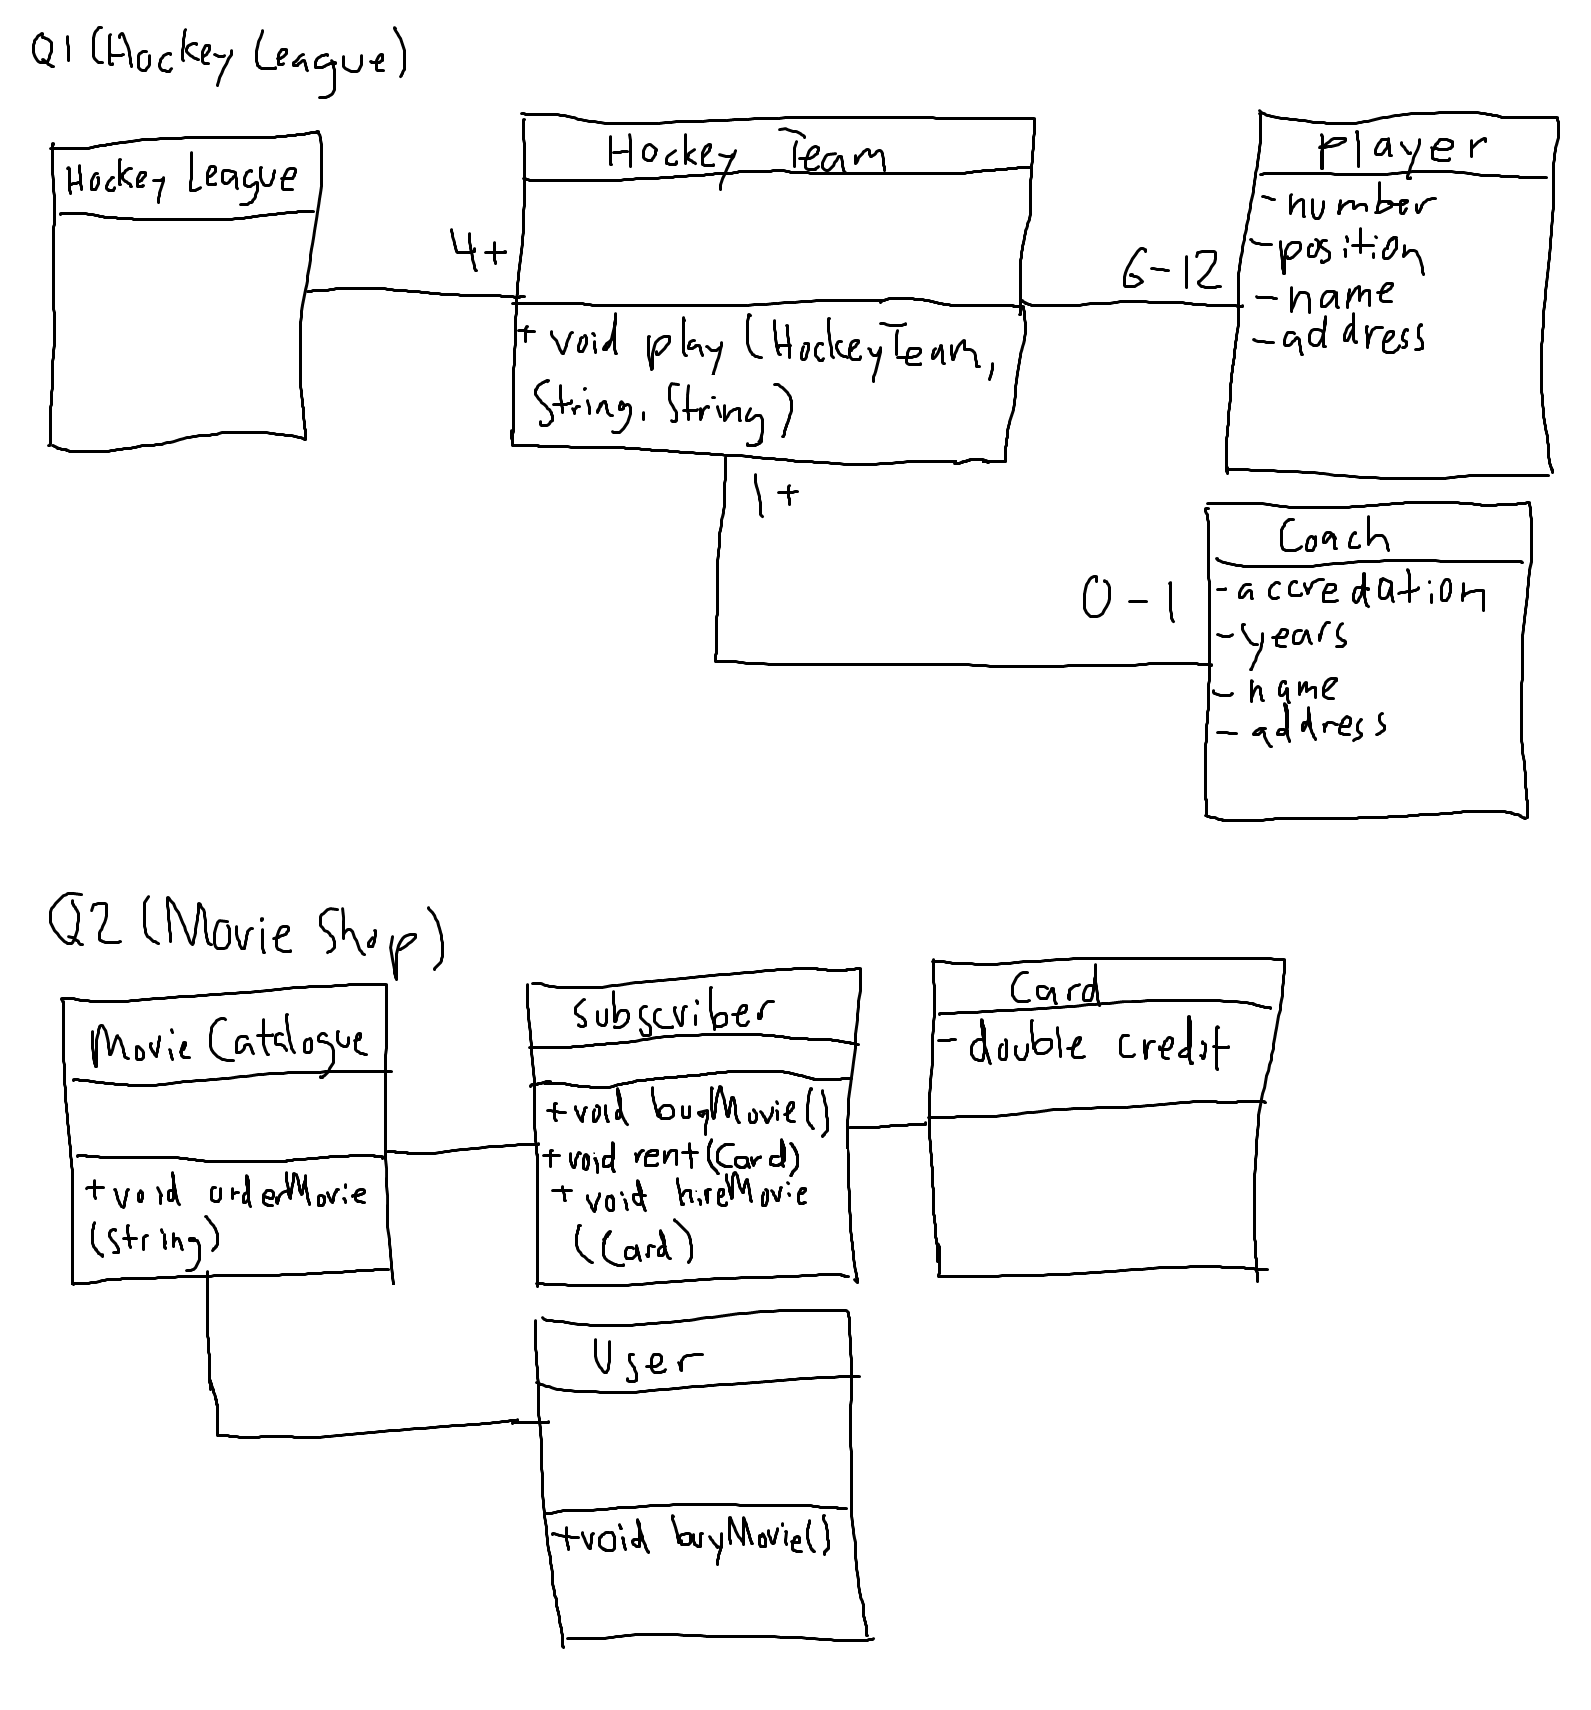 Q1 (Hockey League)
Hockey League
4+
Hockey Team
+ void play (HockeyTeam,
String, String)
1+
6-12
Player
- number
- position
- name
- address
0-1
Coach
- accredation
- years
- name
- address
Q2 (Movie Shop)
Movie Catalogue
+ void orderMovie
(String)
Subscriber
+void buyMovie()
+void rent(Card)
+ void hireMovie
(Card)
Card
- double credit
User
+void buyMovie()